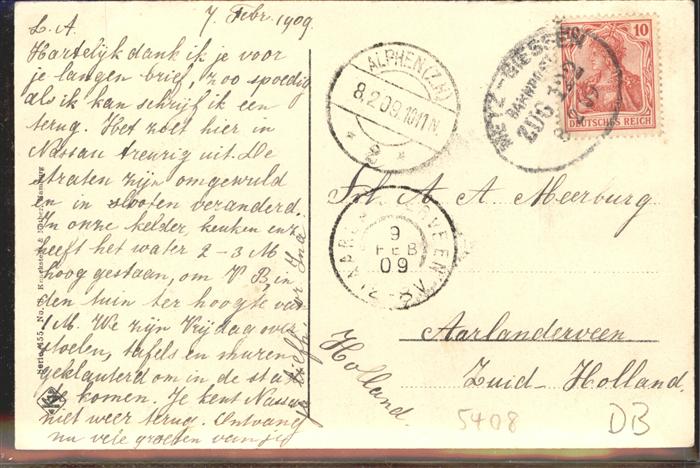 7 Febr. 1909.
L. A.
Hartelijk dank ik je voor
je langen brief, zoo spoedig
als ik kan schrijf ik een
terug. Het ziet hier in
Nassau treurig uit. De
straten zijn omgewuld
en in slooten veranderd.
In onze kelder, keuken enz
heeft het water 2-3 M
hoog gestaan, om V B, in
den tuin ter hoogte van
1 M. We zijn Vrijdag over
stoelen, tafels en muren
geklauterd om in de stad
te komen. Je kent Nassau
niet weer terug. Ontvang
nu vele groeten van je
je liefh. Ina
Serie 455. No.
ALPHEN (Z.H)
8.2.09.10-11N.
* 2 *
METZ - GIESSEN
BAHNPOST
ZUG
10
DEUTSCHES REICH
AARLANDERVEEN
9
FEB
09
Frl. A. A. Meerburg
Aarlanderveen
Zuid-Holland.
Holland.
5408
DB